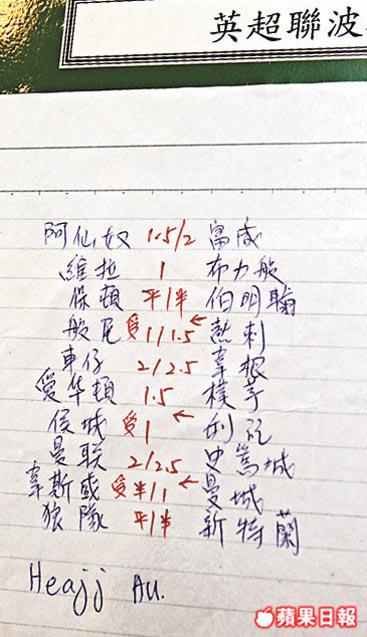 英超聯波
阿仙奴 1.5/2 富咸
維拉 1 布力般
保頓 平/半 伯明翰
般尾 受1/1.5 ← 熱刺
車仔 2/2.5 韋根
愛华頓 1.5 樸茅
侯城 受1 ← 利記
曼联 2/2.5 史篤城
韋斯咸 受半/1 ← 曼城
狼隊 平/半 新特蘭
Heajj Au.
蘋果日報